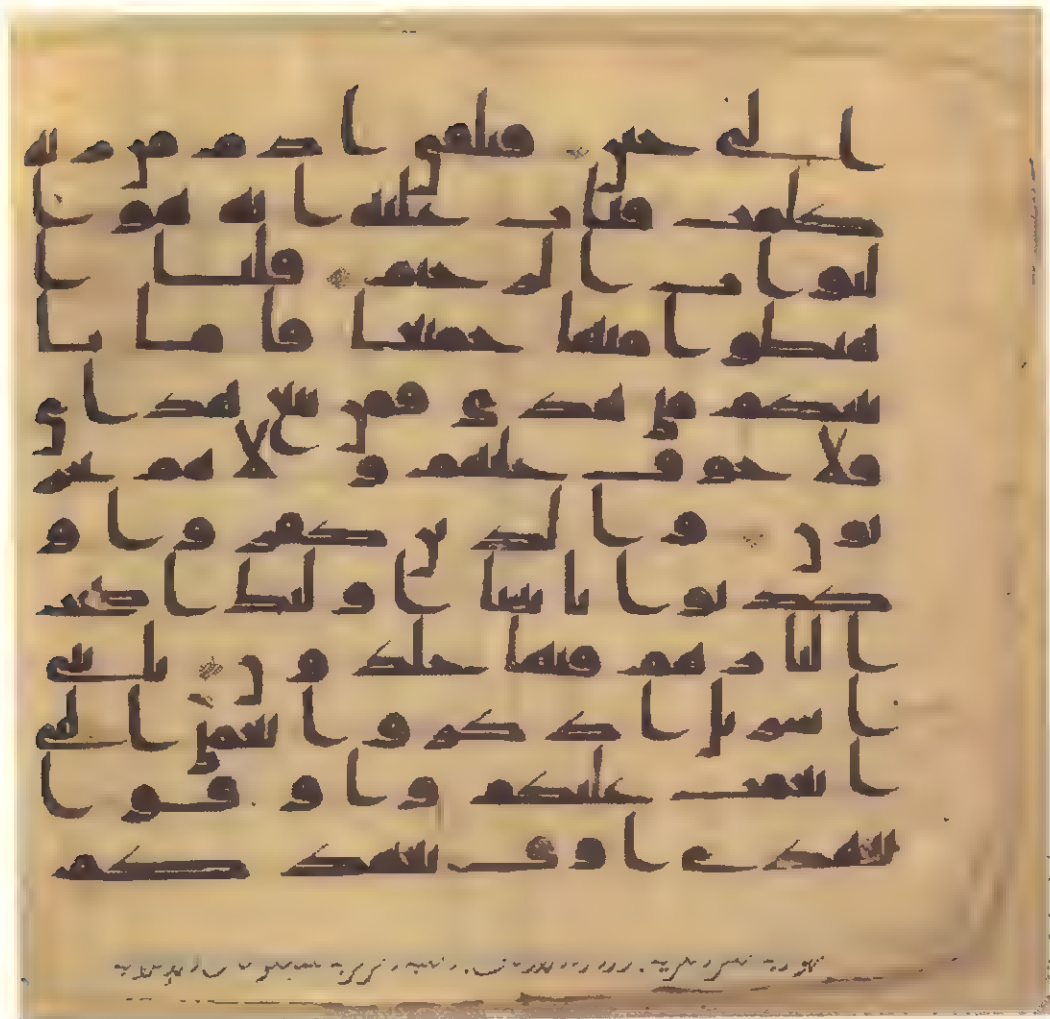 الى حين فتلقى ادم من ربه
كلمت فتاب عليه انه هو ا
لتواب الرحيم قلنا ا
هبطوا منها جميعا فاما يا
تينكم مني هدى فمن تبع هداي
فلا خوف عليهم ولا هم يحز
نون والذين كفروا و
كذبوا بايتنا اولئك اصحب
النار هم فيها خلدون يبني
اسريل اذكروا نعمتي التي
انعمت عليكم واوفوا
بعهدي اوف بعهدكم